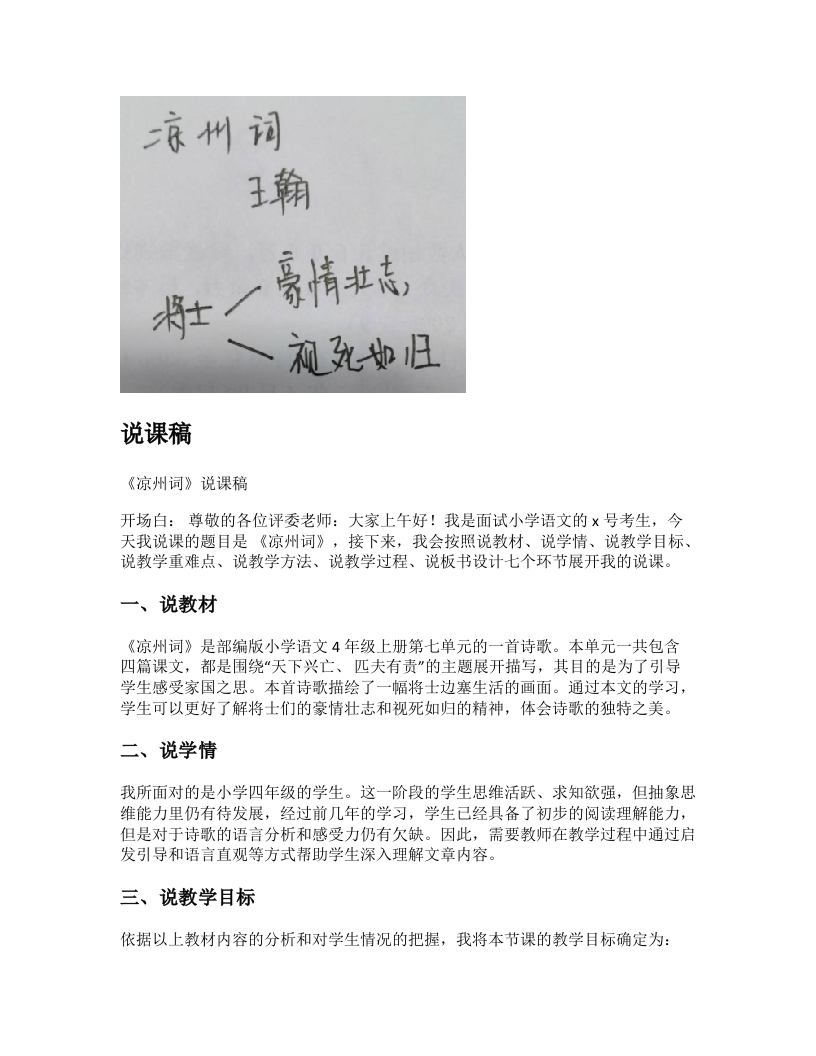 凉州词
王翰
豪情壮志
将士
视死如归
说课稿
《凉州词》说课稿
开场白： 尊敬的各位评委老师：大家上午好！我是面试小学语文的 x 号考生，今
天我说课的题目是 《凉州词》，接下来，我会按照说教材、说学情、说教学目标、
说教学重难点、说教学方法、说教学过程、说板书设计七个环节展开我的说课。
一、说教材
《凉州词》是部编版小学语文 4 年级上册第七单元的一首诗歌。本单元一共包含
四篇课文，都是围绕“天下兴亡、 匹夫有责”的主题展开描写，其目的是为了引导
学生感受家国之思。本首诗歌描绘了一幅将士边塞生活的画面。通过本文的学习，
学生可以更好了解将士们的豪情壮志和视死如归的精神，体会诗歌的独特之美。
二、说学情
我所面对的是小学四年级的学生。这一阶段的学生思维活跃、求知欲强，但抽象思
维能力里仍有待发展，经过前几年的学习，学生已经具备了初步的阅读理解能力，
但是对于诗歌的语言分析和感受力仍有欠缺。因此，需要教师在教学过程中通过启
发引导和语言直观等方式帮助学生深入理解文章内容。
三、说教学目标
依据以上教材内容的分析和对学生情况的把握，我将本节课的教学目标确定为：